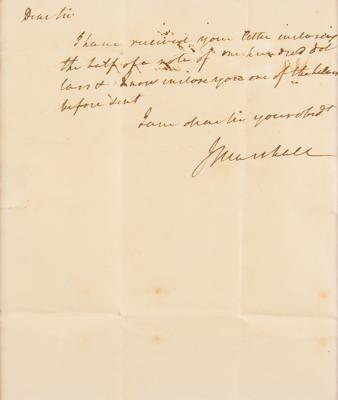 Dear Sir
I have received your letter inclosing
the half of a note of one hundred dol
lars & now inclose you one of the halves
before sent
I am dear Sir your obedt
J Marshall